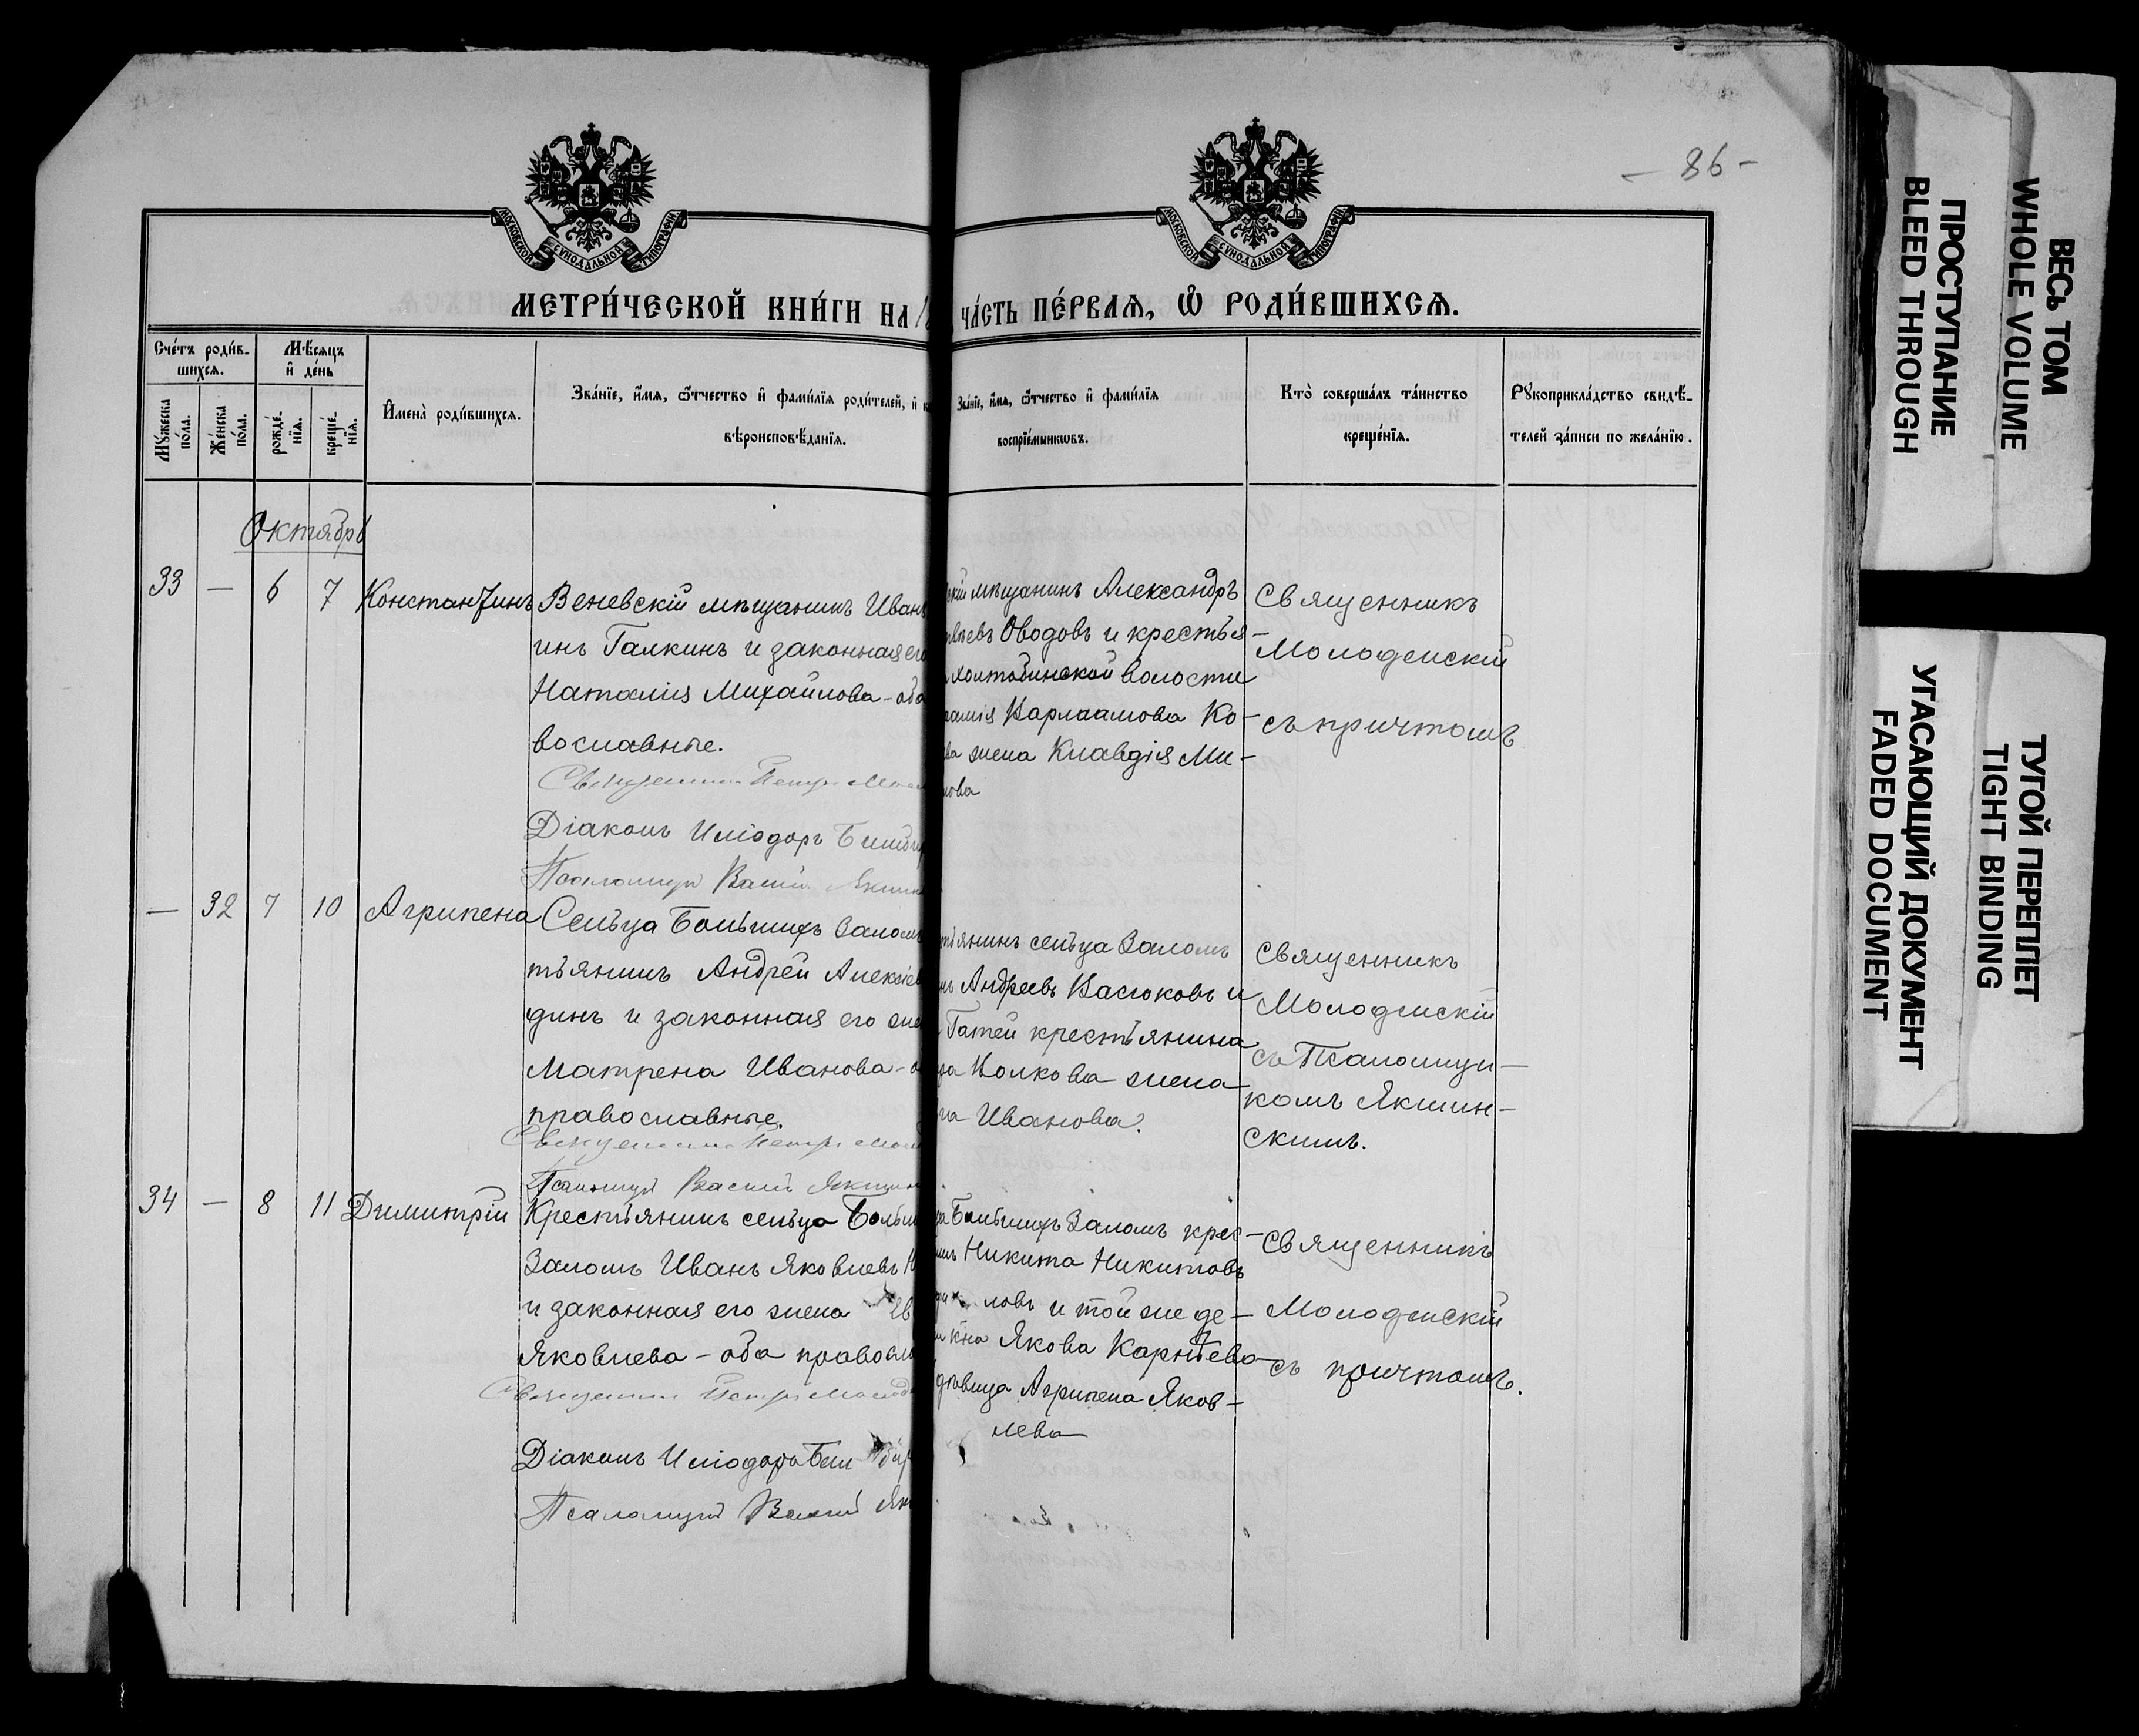 — 86 —
МОСКОВСКОЙ СѴНОДАЛЬНОЙ ТИПОГРАФІИ
МОСКОВСКОЙ СѴНОДАЛЬНОЙ ТИПОГРАФІИ
МЕТРИ́ЧЕСКОЙ КНИ́ГИ НА
ЧА́СТЬ ПЕ́РВАѦ, Ѡ҆ РОДИ́ВШИХСѦ.
Сче́тъ роди́в-
шихсѧ.
Мꙋ́жеска
по́ла.
Же́нска
по́ла.
Мѣ́сѧцъ
и҆ де́нь
рожде́-
нїѧ.
креще́-
нїѧ.
И҆мена̀ роди́вшихсѧ.
Зва́нїе, и҆́мѧ, ѻ҆́тчество и҆ фами́лїѧ роди́телей, и҆
вѣроисповѣ́данїѧ.
Зва́нїе, и҆́мѧ, ѻ҆́тчество и҆ фами́лїѧ
воспрїе́мникѡвъ.
Кто̀ соверша́лъ та́инство
креще́нїѧ.
Рꙋкоприкла́дство свидѣ́-
телей за́писи по жела́нїю.
Октябрь
33 — 6 7 Константинъ
Веневскій мѣщанинъ Иванъ
инъ Галкинъ и законная его
Наталія Михайлова - оба
вославные.
Священникъ Петръ
Діаконъ Иліодоръ
Псаломщ. Васил.
скій мѣщанинъ Александръ
Оводовъ и крестья-
волости
Варлаамова Ко-
ва жена Клавдія Ми-
лова
Священникъ
Молоденскій
съ причтомъ
— 32 7 10 Агрипена
Сельца Большихъ Заломъ
тьянинъ Андрей Алексѣев
динъ и законная его же
Матрена Иванова - о
православные.
Священникъ Петръ
Псаломщ Васил
тьянинъ сельца Заломъ
нъ Андреевъ Васюковъ и
Гатей крестьянина
Волкова жена
на Иванова.
Священникъ
Молоденскій
съ Псаломщи-
комъ Якшин-
скимъ.
34 — 8 11 Димитрій
Крестьянинъ сельца Больш
Заломъ Иванъ Яковлевъ Н
и законная его жена Ев
Яковлева - оба правосла
Священникъ Петръ
Діаконъ Иліодоръ
Псаломщ Васил Як
ца Большихъ Заломъ крес-
нинъ Никита Никитовъ
ловъ и той же де-
кна Якова Карнѣева
вдовица Агрипена Яков-
лева
Священникъ
Молоденскій
съ причтомъ.
ПРОСТУПАНИЕ
BLEED THROUGH
ВЕСЬ ТОМ
WHOLE VOLUME
УГАСАЮЩИЙ ДОКУМЕНТ
FADED DOCUMENT
ТУГОЙ ПЕРЕПЛЕТ
TIGHT BINDING